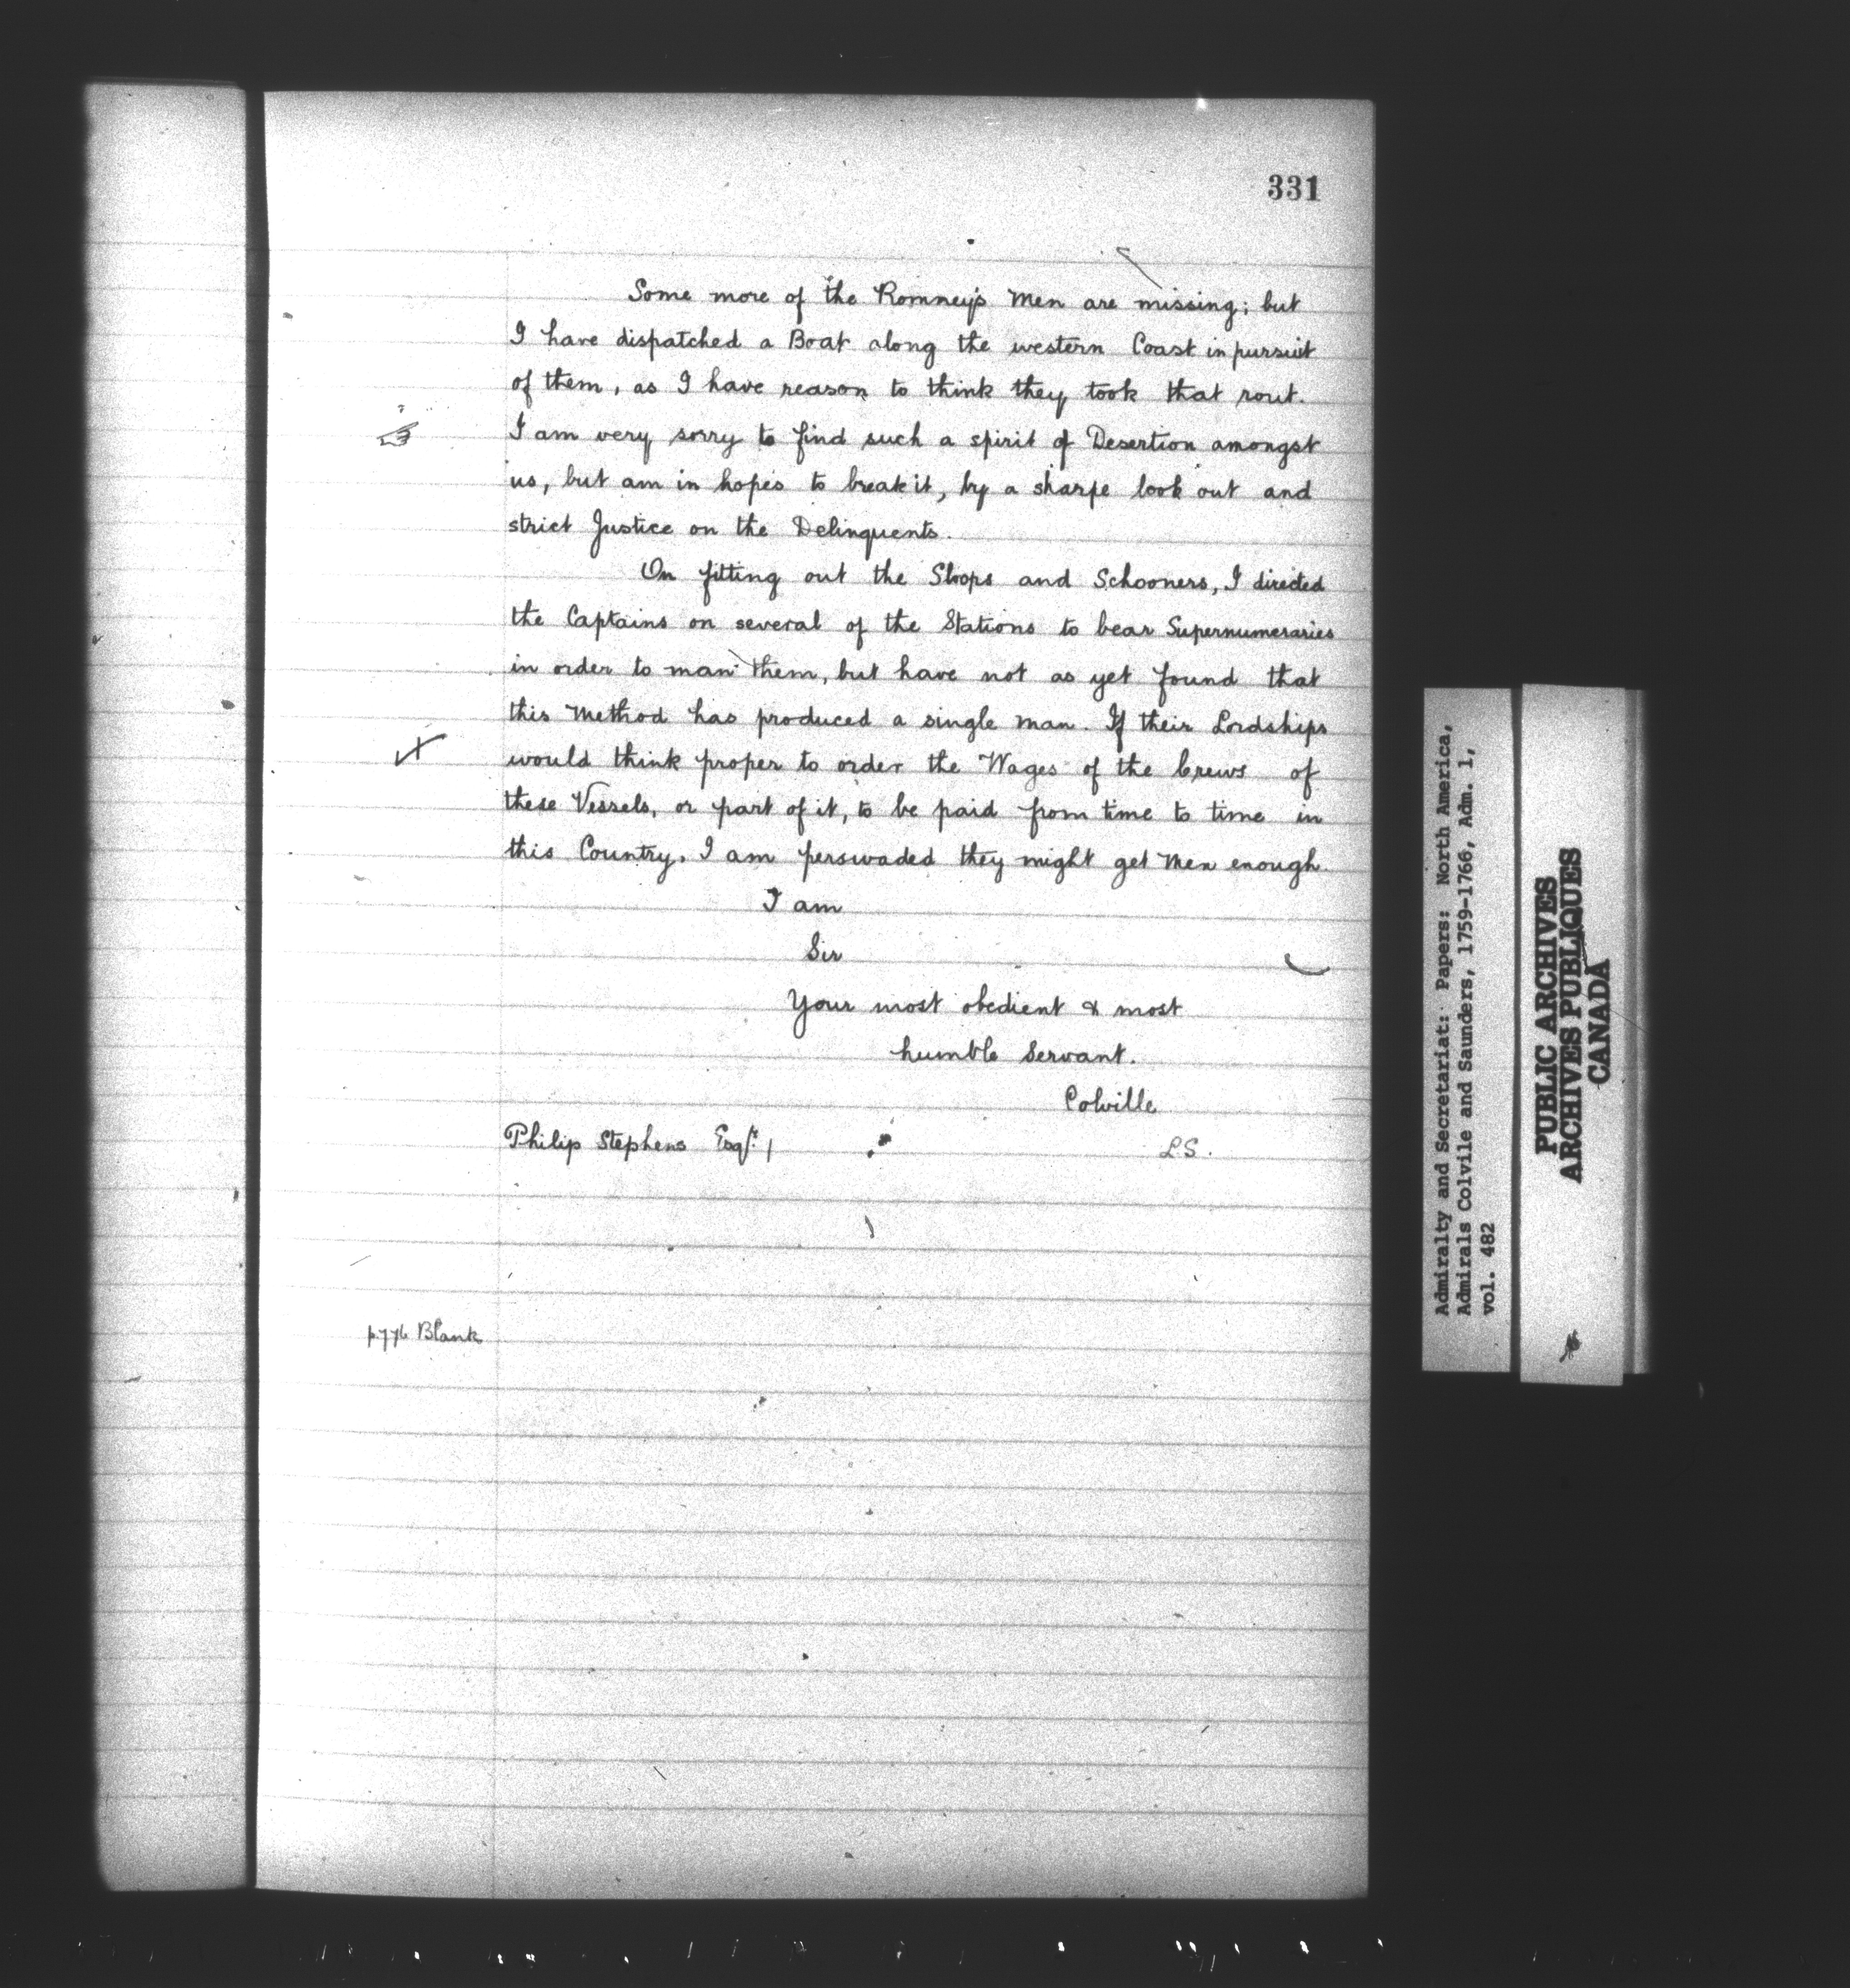 331
Some more of the Romney's Men are missing; but
I have dispatched a Boat along the western Coast in pursuit
of them, as I have reason to think they took that rout.
I am very sorry to find such a spirit of Desertion amongst
us, but am in hopes to break it, by a sharpe look out and
strict Justice on the Delinquents.
On fitting out the Sloops and Schooners, I directed
the Captains on several of the Stations to bear Supernumeraries
in order to man them, but have not as yet found that
this Method has produced a single man. If their Lordships
would think proper to order the Wages of the Crews of
these Vessels, or part of it, to be paid from time to time in
this Country, I am perswaded they might get Men enough.
I am
Sir
Your most obedient & most
humble Servant.
Colville
Philip Stephens Esqr. /
L.S.
Blank
Admiralty and Secretariat: Papers: North America,
Admirals Colvile and Saunders, 1759-1766, Adm. 1,
vol. 482
PUBLIC ARCHIVES
ARCHIVES PUBLIQUES
CANADA